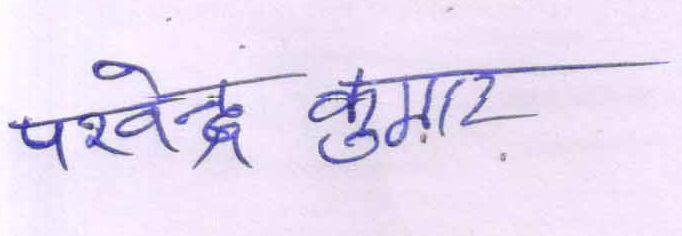 परवेन्द्र कुमार